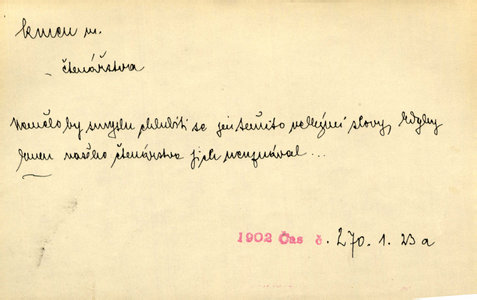 kmen m.
čtenářstva
Nemělo by smyslu chlubiti se jen těmito velkými slovy, kdyby
kmen našeho čtenářstva jich neuznával ...
1902 Čas č. 270. 1. 23 a